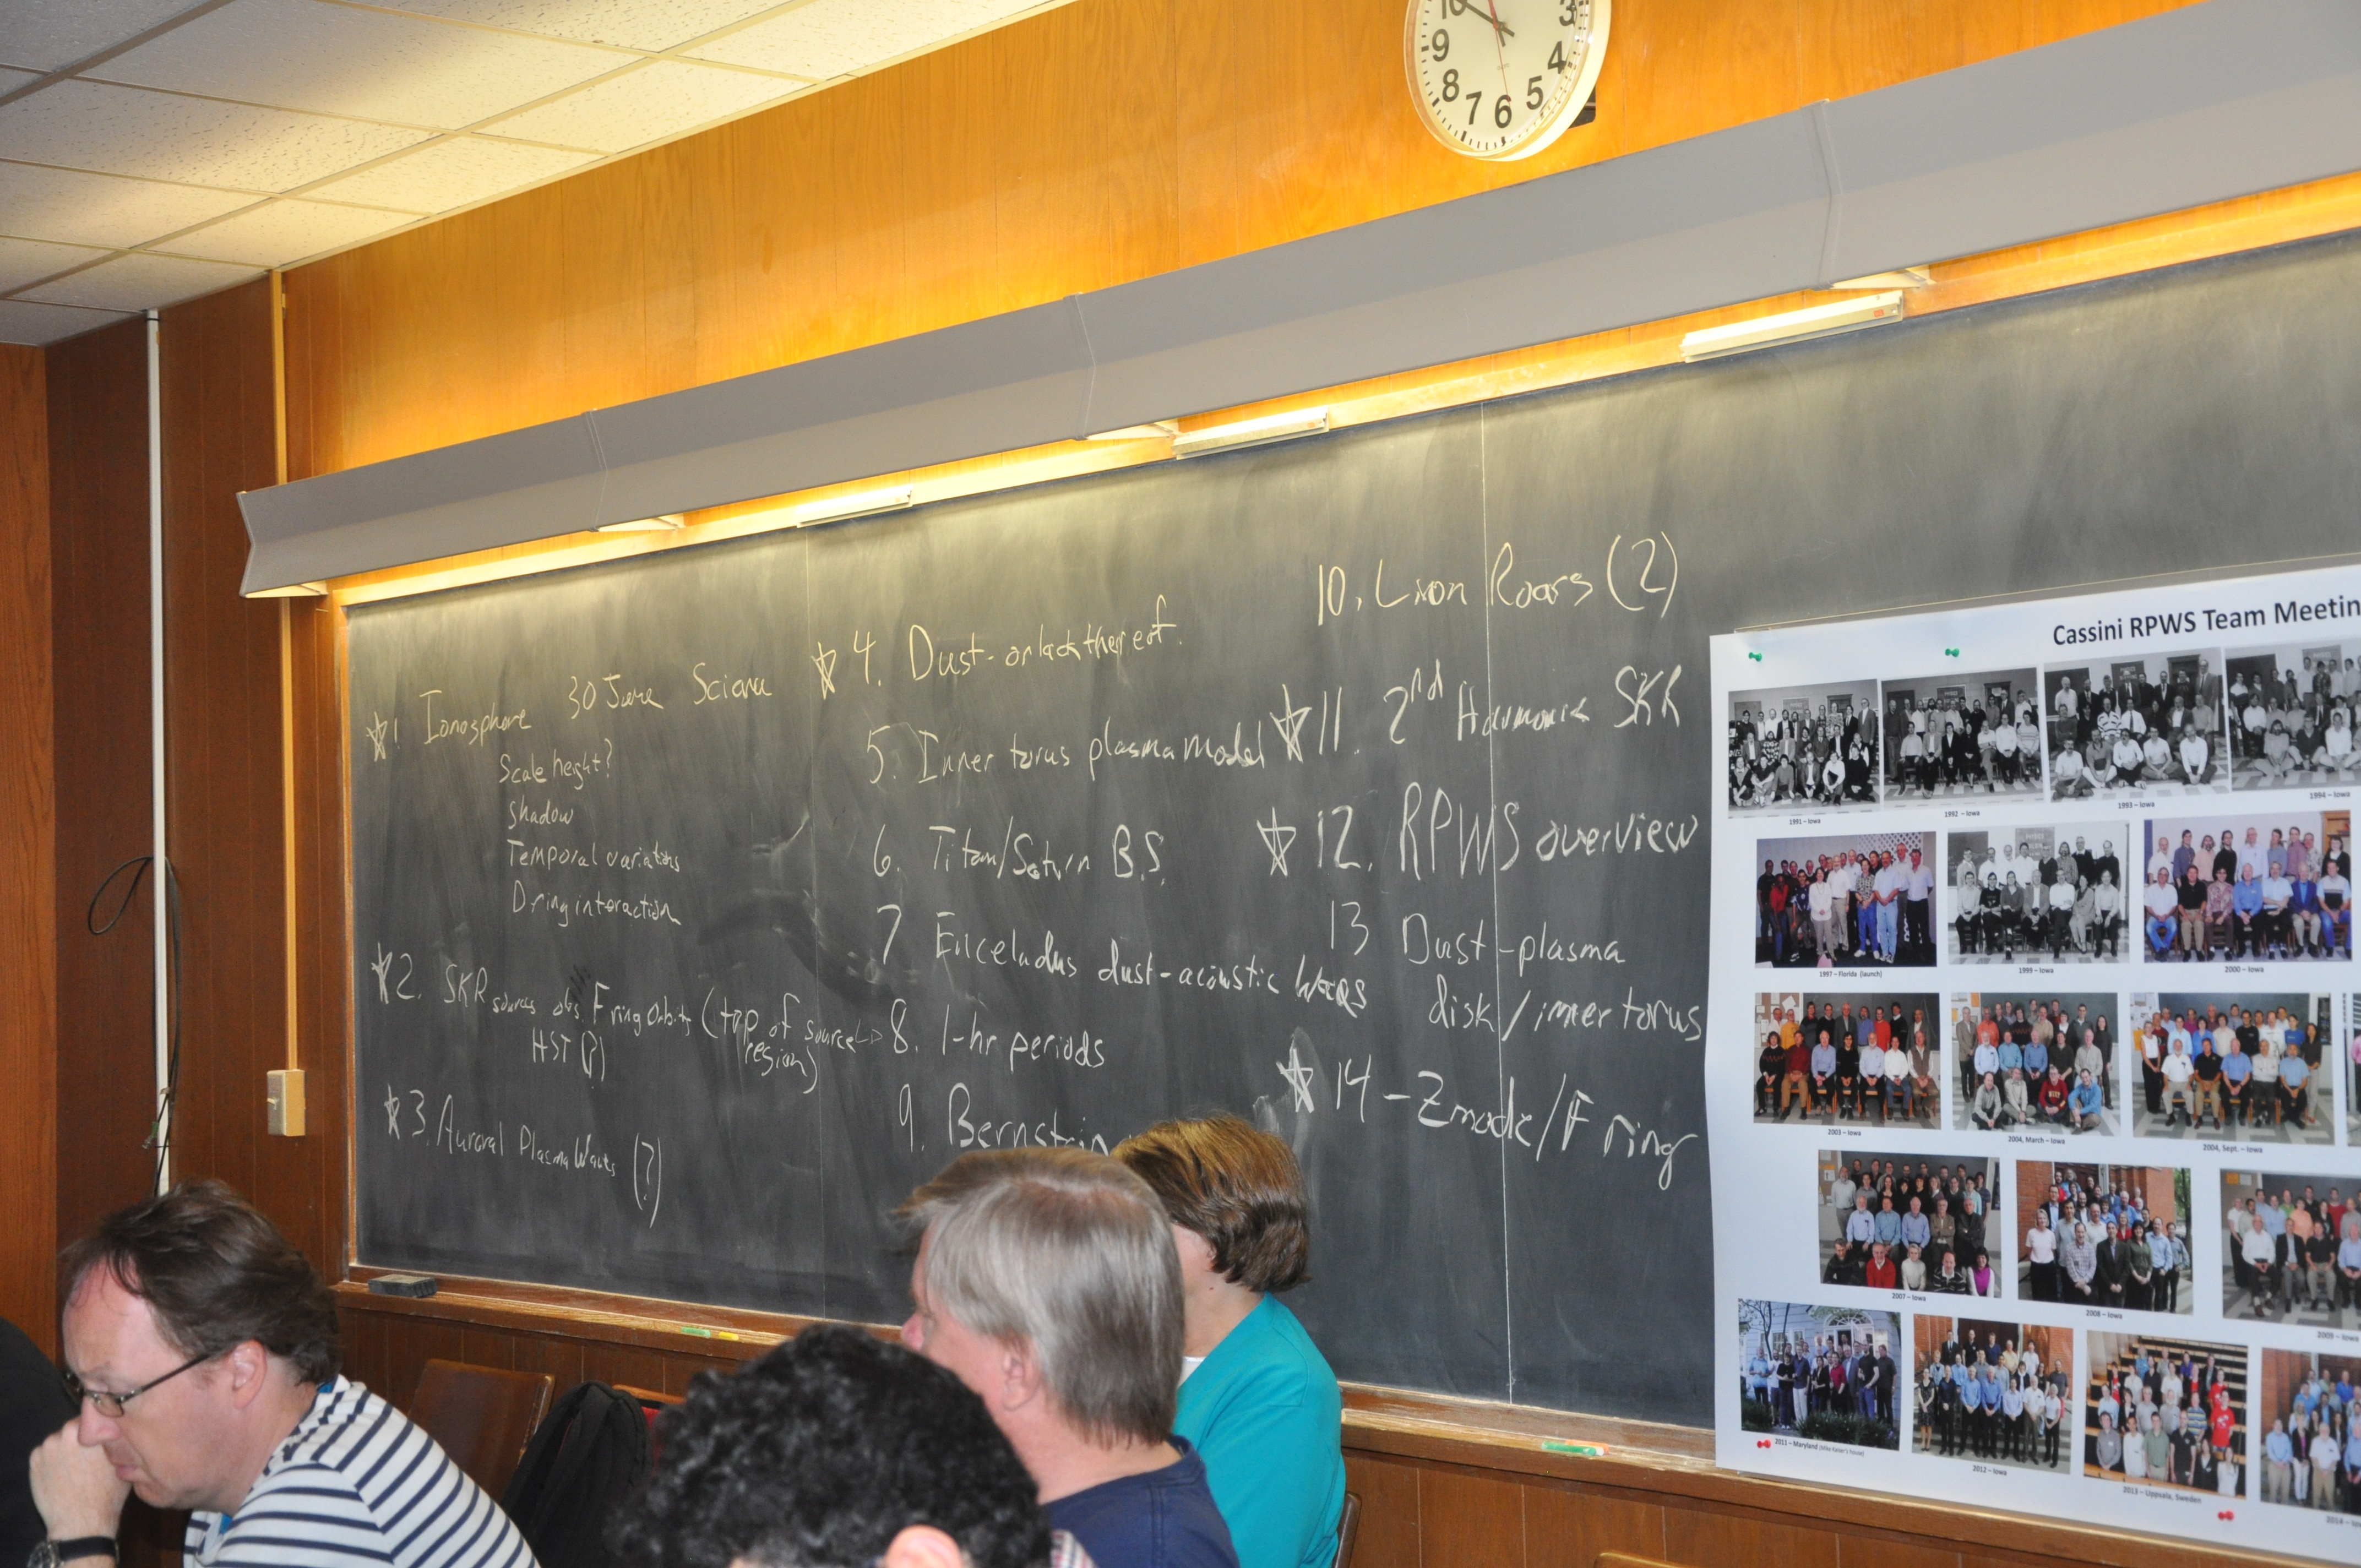 10
9
8
7
6
5
4
3
30 June Science
1 Ionosphere
Scale height?
Shadow
Temporal variations
D ring interaction
2. SKR sources obs. F ring Orbits (top of source region)
HST (?)
3. Auroral Plasma Waves (?)
4. Dust - or lack thereof.
5. Inner torus plasma model
6. Titan/Saturn B.S.
7 Enceladus dust-acoustic
8. 1-hr periods
9. Bernstein
10. Lion Roars (2)
11. 2nd Harmonic SKR
12. RPWS overview
13 Dust-plasma
disk/inner torus
14 - Z mode/F ring
Cassini RPWS Team Meetin
1991 – Iowa
1992 – Iowa
1993 – Iowa
1994 – Iowa
1997 – Florida (launch)
1999 – Iowa
2000 – Iowa
2003 – Iowa
2004, March – Iowa
2004, Sept. – Iowa
2007 – Iowa
2008 – Iowa
2009 – Iowa
2011 – Maryland (Mike Kaiser's house)
2012 – Iowa
2013 – Uppsala, Sweden
2014 – Io